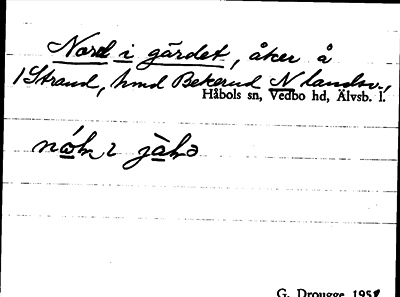 Nord i gärdet, åker å
1 Strand, hmd Bekerud N landsv.,
Håbols sn, Vedbo hd, Älvsb. l.
G. Drougge 1951